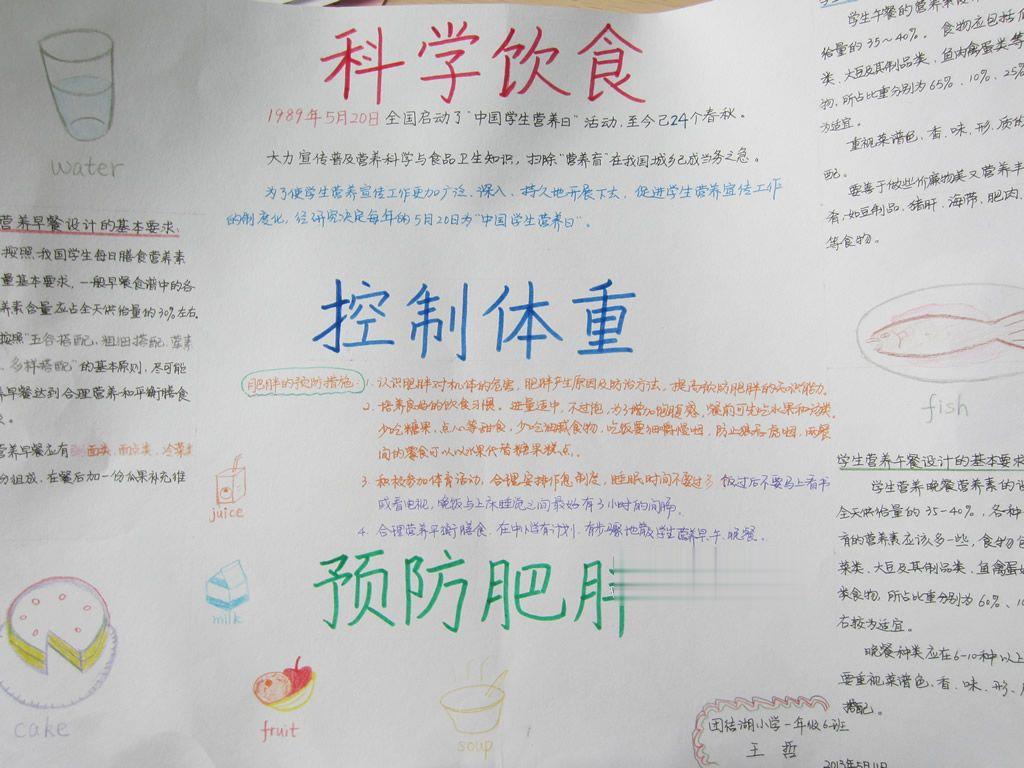 科学饮食
1989年5月20日全国启动了"中国学生营养日"活动，至今已24个春秋。
大力宣传普及营养科学与食品卫生知识，扫除"营养盲"在我国城乡已成当务之急。
为了使学生营养宣传工作更加广泛、深入、持久地开展下去，促进学生营养宣传工作
的制度化，经研究决定每年的5月20日为"中国学生营养日"。
water
营养早餐设计的基本要求：
按照我国学生每日膳食营养素
量基本要求，一般早餐食谱中的各
养素含量应占全天供给量的30%左右
按照"五谷搭配、粗细搭配、荤素
、多样搭配"的基本原则，尽可能
早餐达到合理营养和平衡膳食
营养早餐应有
面类、而点类、冷菜类
分组成，在餐后加一份瓜果补充维
控制体重
肥胖的预防措施：
1. 认识肥胖对机体的危害，肥胖产生原因及防治方法，提高预防肥胖的知识能力。
2. 培养良好的饮食习惯。进量适中，不过饱，为了增加饱腹感，餐前可先吃水果和汤类，
少吃糖果，点心等甜食，少吃油腻食物，吃饭要细嚼慢咽，防止狼吞虎咽，两餐
间的零食可以以水果代替糖果糕点。
3. 积极参加体育活动，合理安排作息制度，睡眠时间不要过多 饭过后不要马上看书
或看电视，晚饭与上床睡觉之间最好有3小时的间隔。
4. 合理营养平衡膳食，在中小学有计划，有步骤地
学生营养早、午、晚餐。
预防肥
juice
milk
cake
fruit
soup
学生午餐的营养素
给量的35~40%。食物应包括
类、大豆及其制品类、鱼肉禽蛋类等
物，所占比重分别为65%、10%、25%
为适宜。
重视菜谱色、香、味、形、质的
配。
要善于做些价廉物美又营养丰
有，如豆制品、猪肝、海带、肥肉、
等食物。
fish
学生营养午餐设计的基本要求
学生营养晚餐营养素的
全天供给量的35-40%，各种
育的营养素应该多一些，食物包
菜类、大豆及其制品类、鱼禽蛋
类食物，所占比重分别为60%、
右较为适宜。
晚餐种类应在6-10种以上
要重视菜谱色、香、味、形、
搭配。
团结湖小学一年级6班
王哲
2013年5月11日